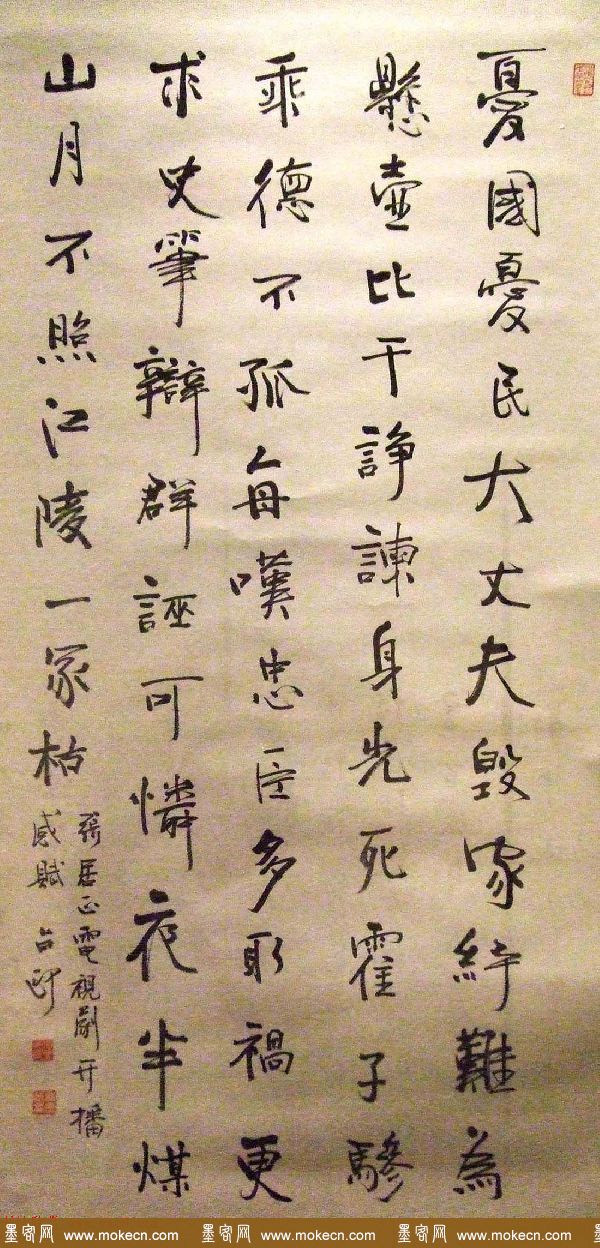 憂國憂民大丈夫毀家紓難為
懸壺比干諍諫身先死霍子驂
乘德不孤每嘆忠臣多取禍更
求史筆辯群誣可憐夜半煤
山月不照江陵一冢枯
張居正電視劇开播
感賦
墨客网 www.mokecn.com 墨客网 www.mokecn.com 墨客网 www.mokecn.com 墨客网 www.mokecn.com